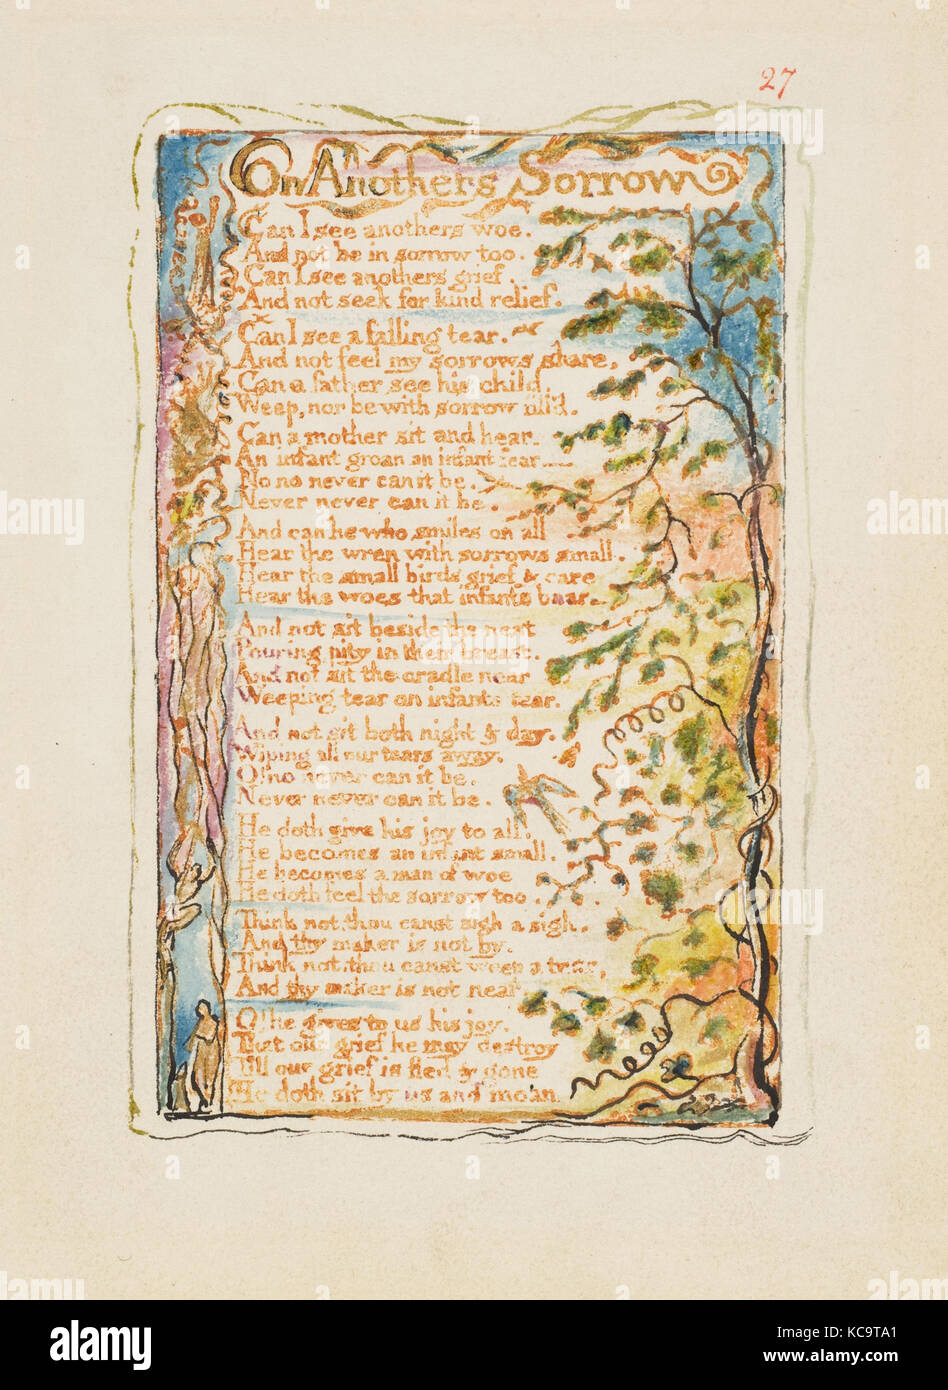 27
On Anothers Sorrow
Can I see anothers woe.
And not be in sorrow too.
Can I see anothers grief
And not seek for kind relief.
Can I see a falling tear.
And not feel my sorrows share,
Can a father see his child,
Weep, nor be with sorrow fill'd.
Can a mother sit and hear.
An infant groan an infant fear
No no never can it be.
Never never can it be.
And can he who smiles on all
Hear the wren with sorrows small.
Hear the small birds grief & care
Hear the woes that infants bear
And not sit beside the nest
Pouring pity in their breast.
And not sit the cradle near
Weeping tear on infants tear.
And not sit both night & day.
Wiping all our tears away.
O! no never can it be.
Never never can it be.
He doth give his joy to all.
He becomes an infant small.
He becomes a man of woe
He doth feel the sorrow too.
Think not, thou canst sigh a sigh.
And thy maker is not by.
Think not, thou canst weep a tear,
And thy maker is not near
O! he gives to us his joy.
That our grief he may destroy
Till our grief is fled & gone
He doth sit by us and moan
alamy
alamy
Image ID: KC9TA1
www.alamy.com